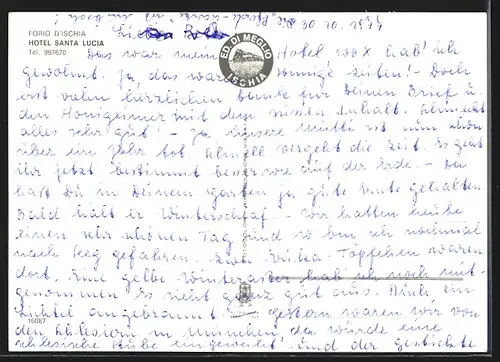 die 30 10. 1974
FORIO D'ISCHIA
HOTEL SANTA LUCIA
Tel. 997670
ED. DI MEGLIO
ISCHIA
Das war mein Hotel wo hab' ich
gewohnt. Ja das waren sonnige Zeiten! - Doch
erst vielen herzlichen Danke für Deinen Brief u.
den Honigeimer mit dem süssen Inhalt. Schmeckt
alles sehr gut! - Ja unsere Mutti ist nun schon
über ein Jahr tot schnell vergeht die Zeit. Es geht
ihr jetzt bestimmt besser wie auf der Erde. - Da
hast Du in Deinem Garten ja gute Ernte gehalten.
Bald hält er Winterschlaf. - Wir hatten heute
einen sehr schönen Tag und so bin ich nochmal
nach gefahren. Zwei Erika Töpfchen waren
dort. Eine gelbe Winteraster hab ich noch mit-
genommen. Es sieht ganz gut aus. Auch ein
angebrannt. gestern waren wir von
den Schlesiern in München da wurde eine
schlesische Stube eingeweiht. Und der
16087